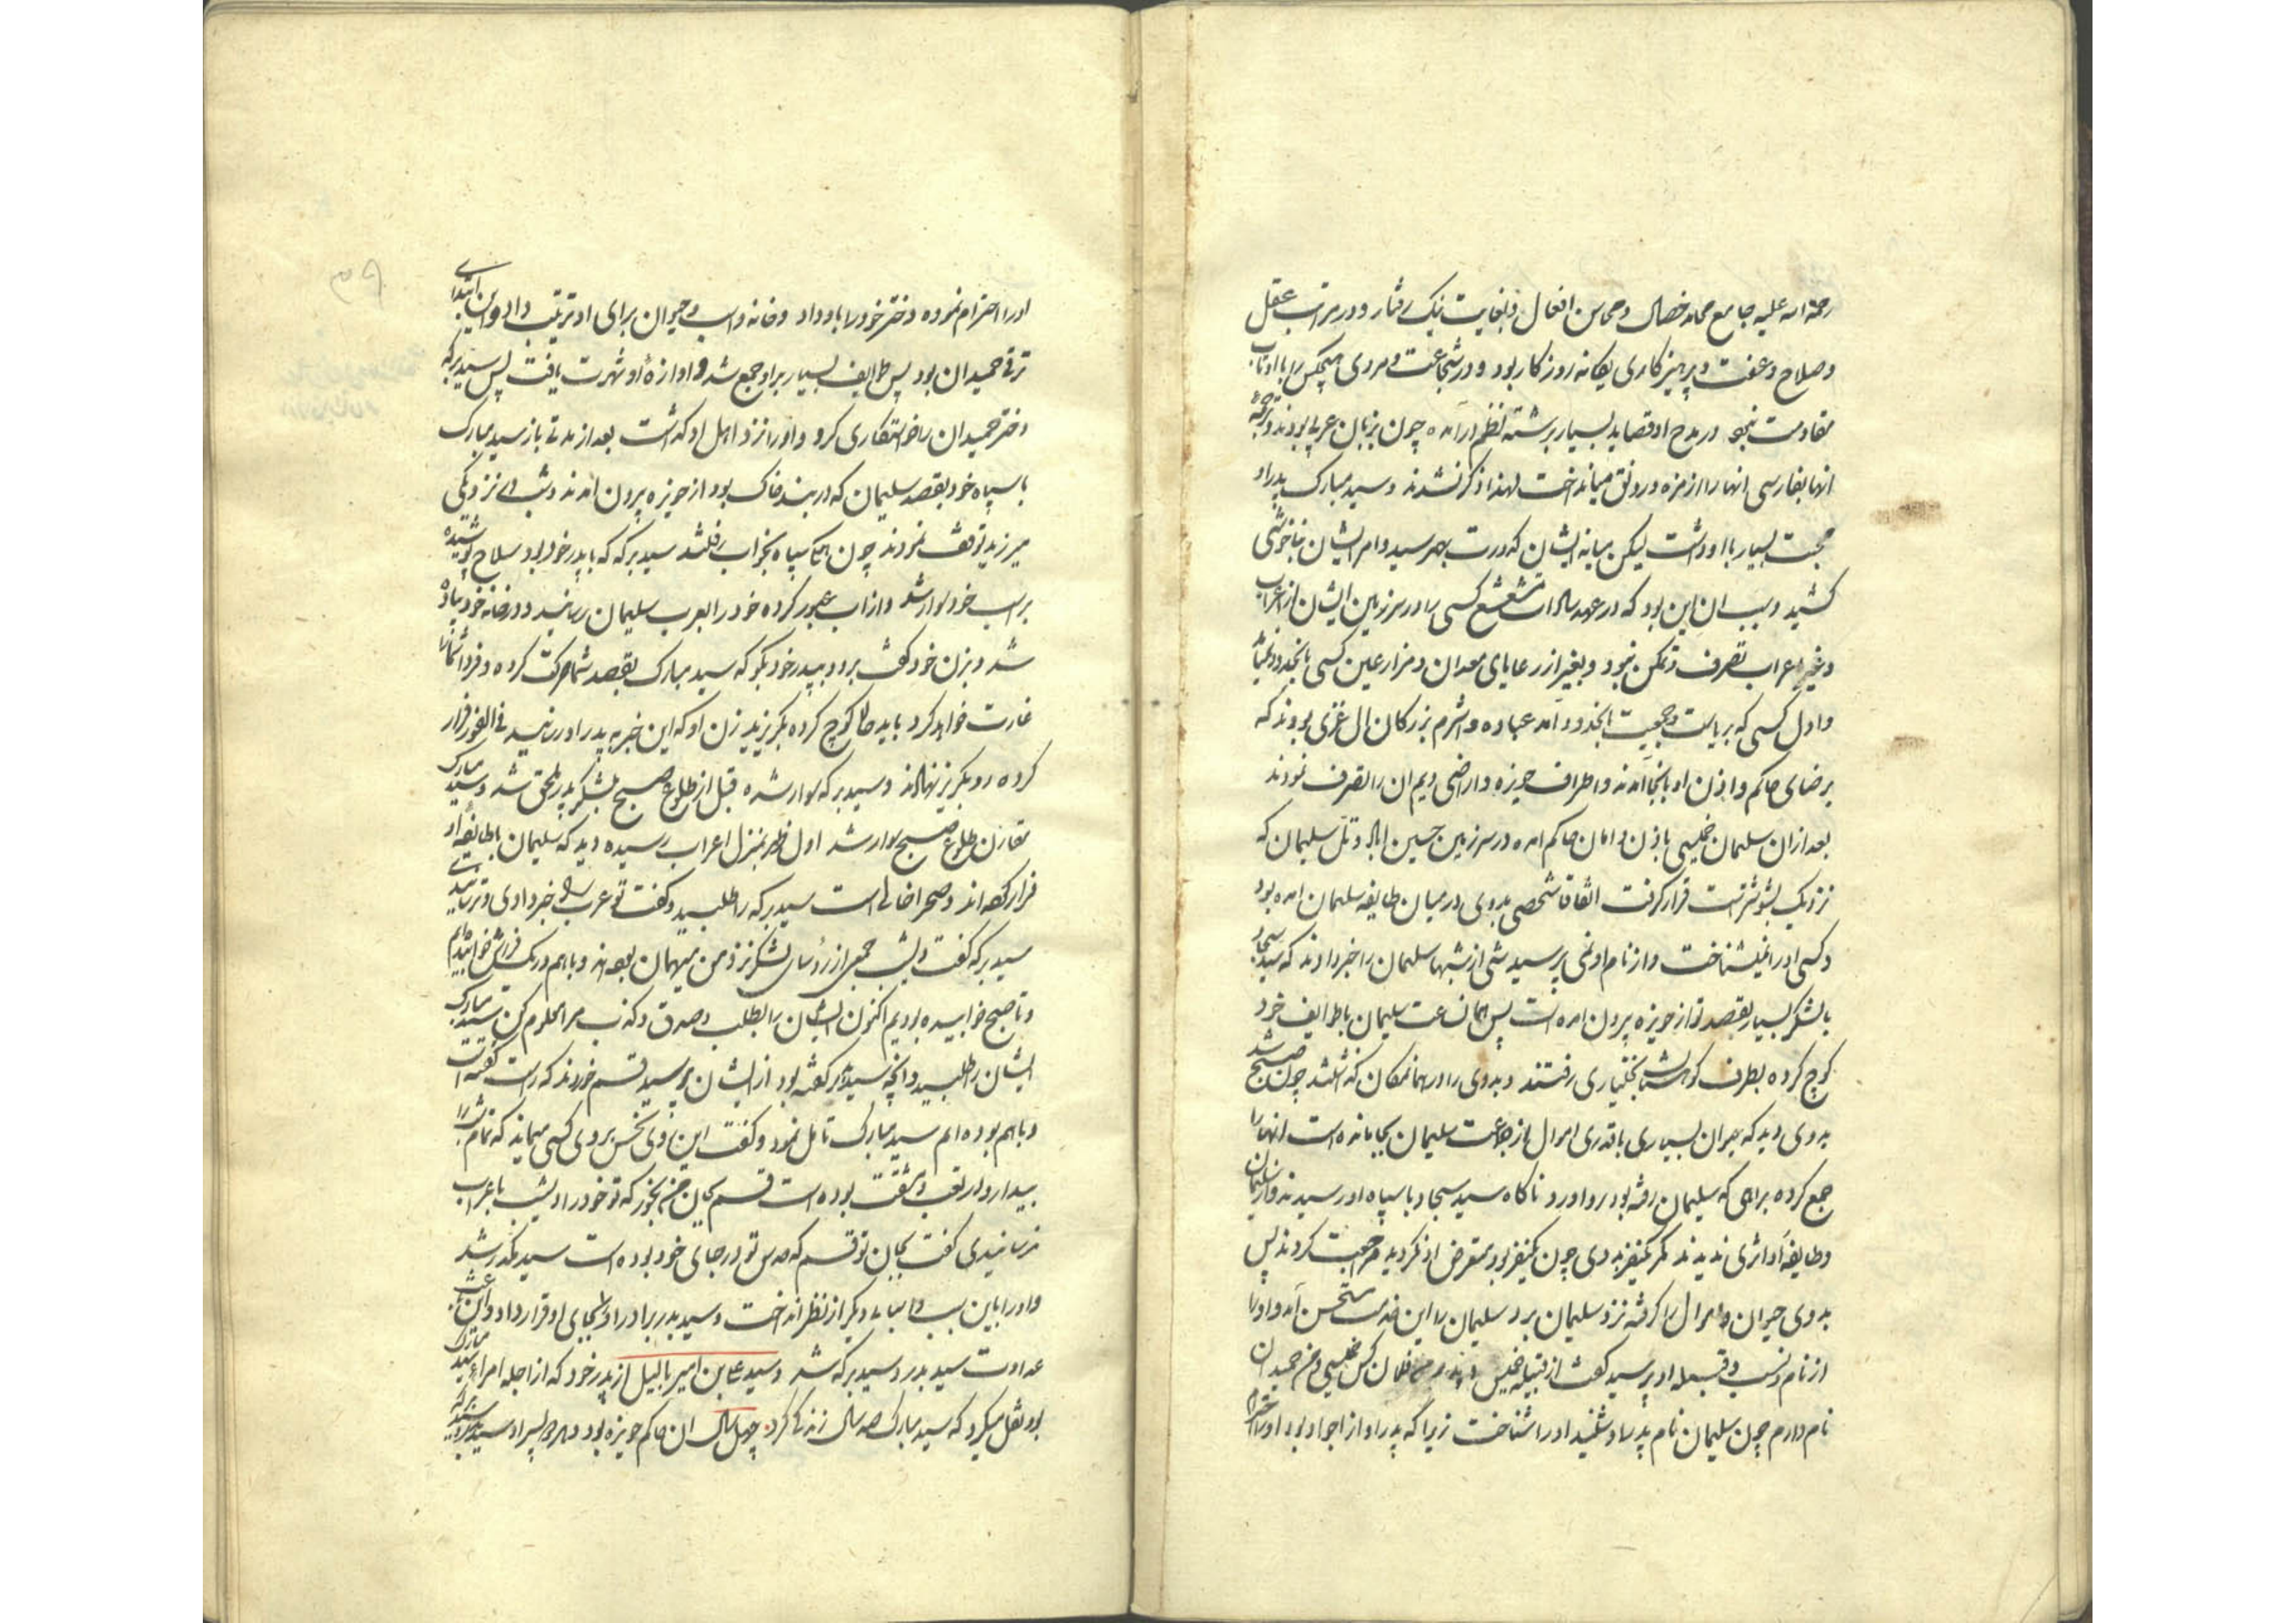 رحمة الله علیه جامع محامد خصال و محاسن افعال و بغایت نیک رفتار و در مراتب عقل
و صلاح و عفت و پرهیزکاری یگانه روزکار بود و در شجاعت و مردی هیچکس را با او تاب
مقاومت نبود در مدح او قصاید بسیار برشته نظم درآمده چون بزبان عربی بودند و ترجمه
انها بفارسی انها را از مزه و رونق میانداخت لهذا ذکر نشدند و سید مبارک پدر او
محبت بسیار با او داشت لیکن میانه ایشان کدورت بهم رسید و امر ایشان بناخوشی
کشید و سبب ان این بود که در عهد سادات مشعشع کسی را در سرزمین ایشان از اعراب
و غیر اعراب تصرف و تمکن نبود و بغیر از رعایای معدان و مزارعین کسی بانحدود
و اول کسی که بریاست و جمعیت بانحدود آمد عباده و اشرم بزرکان ال غزی بودند که
برضای حاکم و اذن او بانجا آمدند و اطراف حویزه و اراضی ویم ان را تصرف نمودند
بعد از ان سلیمان خمیسی باذن و امان حاکم امده در سرزمین حسین اباد و تل سلیمان که
نزدیک بشوشتر است قرار کرفت اتفاقا شخصی بدوی در میان طایفه سلیمان امده بود
و کسی او را نمیشناخت و از نام او نمی پرسید شبی از شبها سلیمان را خبر دادند که سید سجاد
با لشکر بسیار بقصد تو از حویزه بیرون امده است پس همان ساعت سلیمان با طوایف خود
کوچ کرده بطرف کوهستان بختیاری رفتند و بدوی را در همانمکان کذاشتند چون صبح شد
بدوی دید که حیوان بسیاری با قدری اموال از جماعت سلیمان بجا مانده است انها را
جمع کرده براهی که سلیمان رفته بود رو اورد ناکاه سید سجاد با سپاه او رسیدند و از سلیمان
و طایفه او اثری ندیدند مکر یکنفر بدوی چون یکنفر بود متعرض او نکردید و مراجعت کردند پس
بدوی حیوان و اموال را کرفته نزد سلیمان برد سلیمان را این خدمت مستحسن آمد و او را
از نام و نسب و قبیله او پرسید کفت از قبیله خمیس و پدرم فلان کس خمیسی و من حمیدان
نام دارم چون سلیمان نام پدر او شنید او را شناخت زیرا که پدر او از اجواد بود او را
او را احترام نموده دختر خود را باو داد و خانه و اسب و حیوان برای او ترتیب داد و این ابتدای
ترقی حمیدان بود پس طوایف بسیار بر او جمع شد و اوازهٔ او شهرت یافت پس سید برکه
دختر حمیدان را خواستکاری کرد و او را نزد اهل او کذاشت بعد از مدتی باز سید مبارک
با سپاه خود بقصد سلیمان که در بند خاک بود از حویزه بیرون امدند و شب در نزدیکی
میرزید توقف نمودند چون همکی سپاه بخواب رفتند سید برکه که با پدر خود بود سلاح پوشیده
بر اسب خود سوار شد و از اب عبور کرده خود را بعرب سلیمان رسانید و در خانه خود پیاده
شد و بزن خود کفت برو و بپدر خود بکو که سید مبارک بقصد شما حرکت کرده و فردا شما را
غارت خواهد کرد باید حالا کوچ کرده بکریزید زن او که این خبر به پدر او رسانید فی الفور فرار
کرده رو بکریز نهادند و سید برکه سوار شده قبل از طلوع صبح بلشکر پدر ملحق شد و سید مبارک
مقارن طلوع صبح سوار شد اول ظهر بمنزل اعراب رسیده دید که سلیمان با طایفه او
فرار کرده اند و صحرا خالی است سید برکه را طلبید و کفت تو عرب را خبر دادی
سید برکه کفت دیشب جمعی از رؤسای لشکر نزد من میهمان بودند و با هم در یک فراش خوابیدیم
و تا صبح خوابیده بودیم اکنون ایشان را بطلب و صدق و کذب مرا معلوم کن سید مبارک
ایشان را طلبید و انچه سید برکه کفته بود از ایشان پرسید قسم خوردند که راست کفته است
و با هم بوده ایم سید مبارک تامل نمود و کفت این روی نحس بروی کسی میماند که تمام شب را
بیدار و در تعب و مشقت بوده است قسم بجان من بخور که تو خود را دیشب باعراب
نرسانیدی کفت بجان تو قسم که حدس تو در جای خود بوده است سید مکدر شد
و او را باین سبب و اسباب دیکر از نظر انداخت و سید بدر برادر او را بجای او قرار داد و این باعث
عداوت سید بدر و سید برکه شد و سید علی بن امیر بالیل از پدر خود که از اجله امراء سید مبارک
بود نقل میکرد که سید مبارک صد سال زندکی کرد چهل سال ان حاکم حویزه بود